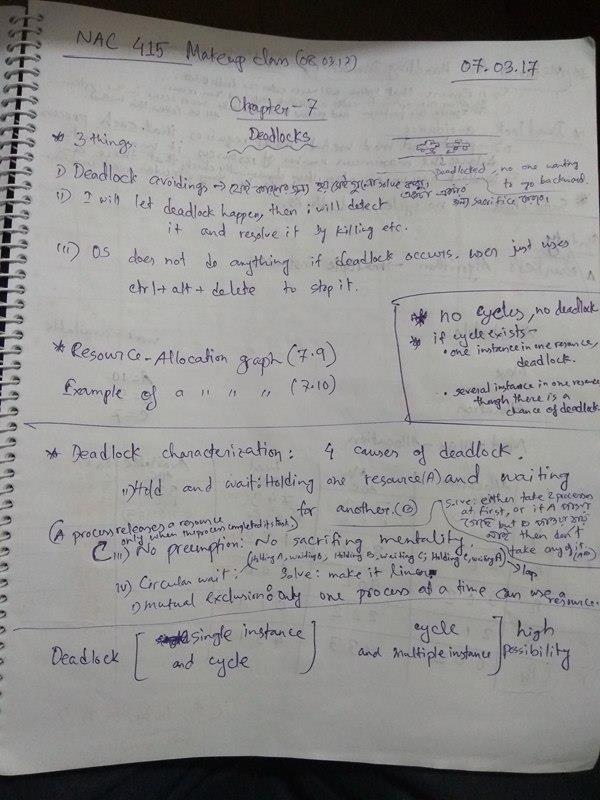 NAC 415 Makeup class (08.03.17)
07.03.17
Chapter-7
Deadlocks
* 3 things.
i) Deadlock avoiding →
Deadlocked, no one wanting
to go backward.
ii) I will let deadlock happen, then i will detect
it and resolve it by killing etc.
iii) OS does not do anything if deadlock occurs. user just uses
ctrl+alt+delete to stop it.
* no cycles, no deadlock
* if cycle exists-
• one instance in one resource,
deadlock.
• several instance in one resource
though there is a
chance of deadlock
* Resource-Allocation graph (7.9)
Example of a " " " (7.10)
* Deadlock characterization: 4 causes of deadlock.
ii) Hold and wait: Holding one resource(A) and waiting
for another.(B)
solve: either take 2 processes
at first, or if A
but B
then don't
take any of it.
(A process releases a resource
only when the process completed its task)
iii) No preemption: No sacrifing mentality.
(Holding A, waiting B, Holding B, waiting C; Holding C, waiting A) → loop
iv) Circular wait: Solve: make it linear.
i) mutual exclusion: Only one process at a time can use a
resource.
Deadlock [single instance
and cycle]
cycle
and multiple instance] high
possibility